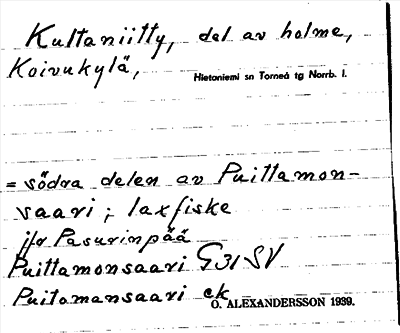 Kultaniitty, del av holme,
Koivukylä,
Hietoniemi sn Torneå tg Norrb. l.
= södra delen av Puittamon-
saari; laxfiske
jfr Pasurinpää
Puittamonsaari G31SV
Puitomansaari ek
O. ALEXANDERSSON 1939.